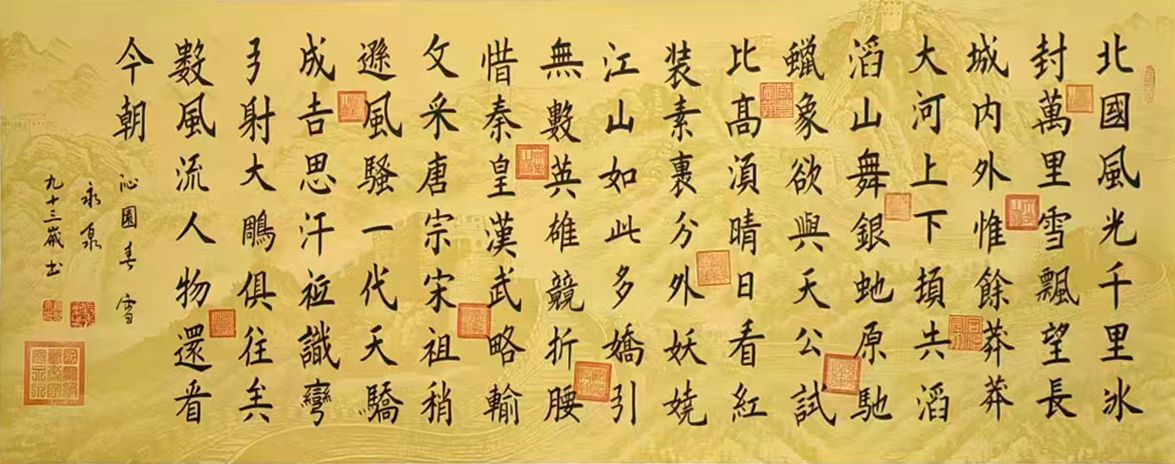 北國風光千里冰
封萬里雪飄望長
城内外惟餘莽莽
大河上下頓失滔
滔山舞銀蛇原馳
蠟象欲與天公試
比高須晴日看紅
装素裹分外妖嬈
江山如此多嬌引
無數英雄競折腰
惜秦皇漢武略輸
文采唐宗宋祖稍
遜風騷一代天驕
成吉思汗祗識彎
弓射大鵰俱往矣
數風流人物還看
今朝
沁園春 雪
永泉
九十三歲书